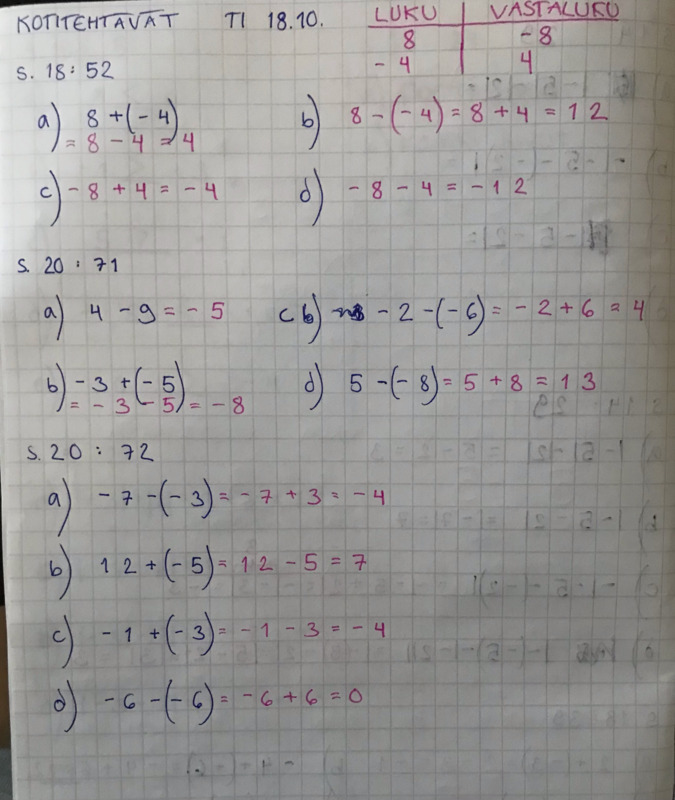 KOTITEHTÄVÄT TI 18.10.
LUKU VASTALUKU
8 -8
-4 4
s. 18 : 52
a) 8 + (-4)
= 8 - 4 = 4
b) 8 - (-4) = 8 + 4 = 12
c) -8 + 4 = -4
d) -8 - 4 = -12
s. 20 : 71
a) 4 - 9 = -5
c) -2 - (-6) = -2 + 6 = 4
b) -3 + (-5)
= -3 - 5 = -8
d) 5 - (-8) = 5 + 8 = 13
s. 20 : 72
a) -7 - (-3) = -7 + 3 = -4
b) 12 + (-5) = 12 - 5 = 7
c) -1 + (-3) = -1 - 3 = -4
d) -6 - (-6) = -6 + 6 = 0